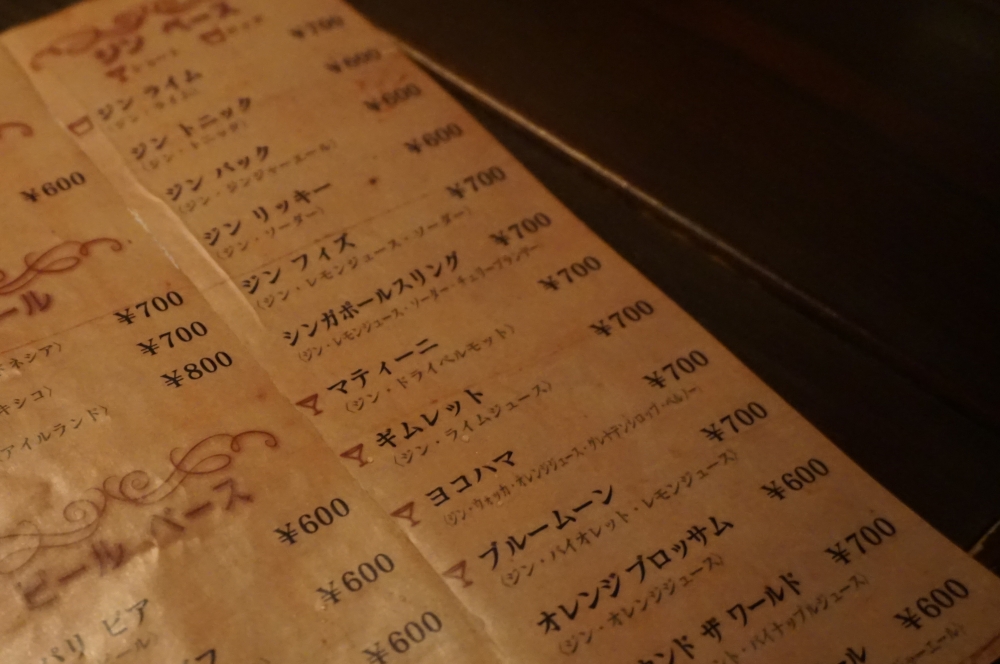 ¥600
ール
ネシア) ¥700
キシコ) ¥700
アイルランド) ¥800
ビール ベース
¥600
パリ ビア ¥600
¥600
ジン ベース
ジン ライム ¥700
(ジン・ライム)
ジン トニック ¥600
(ジン・トニック)
ジン バック ¥600
(ジン・ジンジャーエール)
ジン リッキー ¥600
(ジン・ソーダー)
ジン フィズ ¥700
(ジン・レモンジュース・ソーダー)
シンガポールスリング ¥700
(ジン・レモンジュース・ソーダー・チェリーブランデー)
マティーニ ¥700
(ジン・ドライベルモット)
ギムレット ¥700
(ジン・ライムジュース)
ヨコハマ ¥700
(ジン・ウォッカ・オレンジジュース・グレナデンシロップ・ペルノー)
ブルームーン ¥700
(ジン・バイオレット・レモンジュース)
オレンジ ブロッサム ¥600
(ジン・オレンジジュース)
ンド ザ ワールド ¥700
ント・パイナップルジュース)
ール ¥600
ーエール)